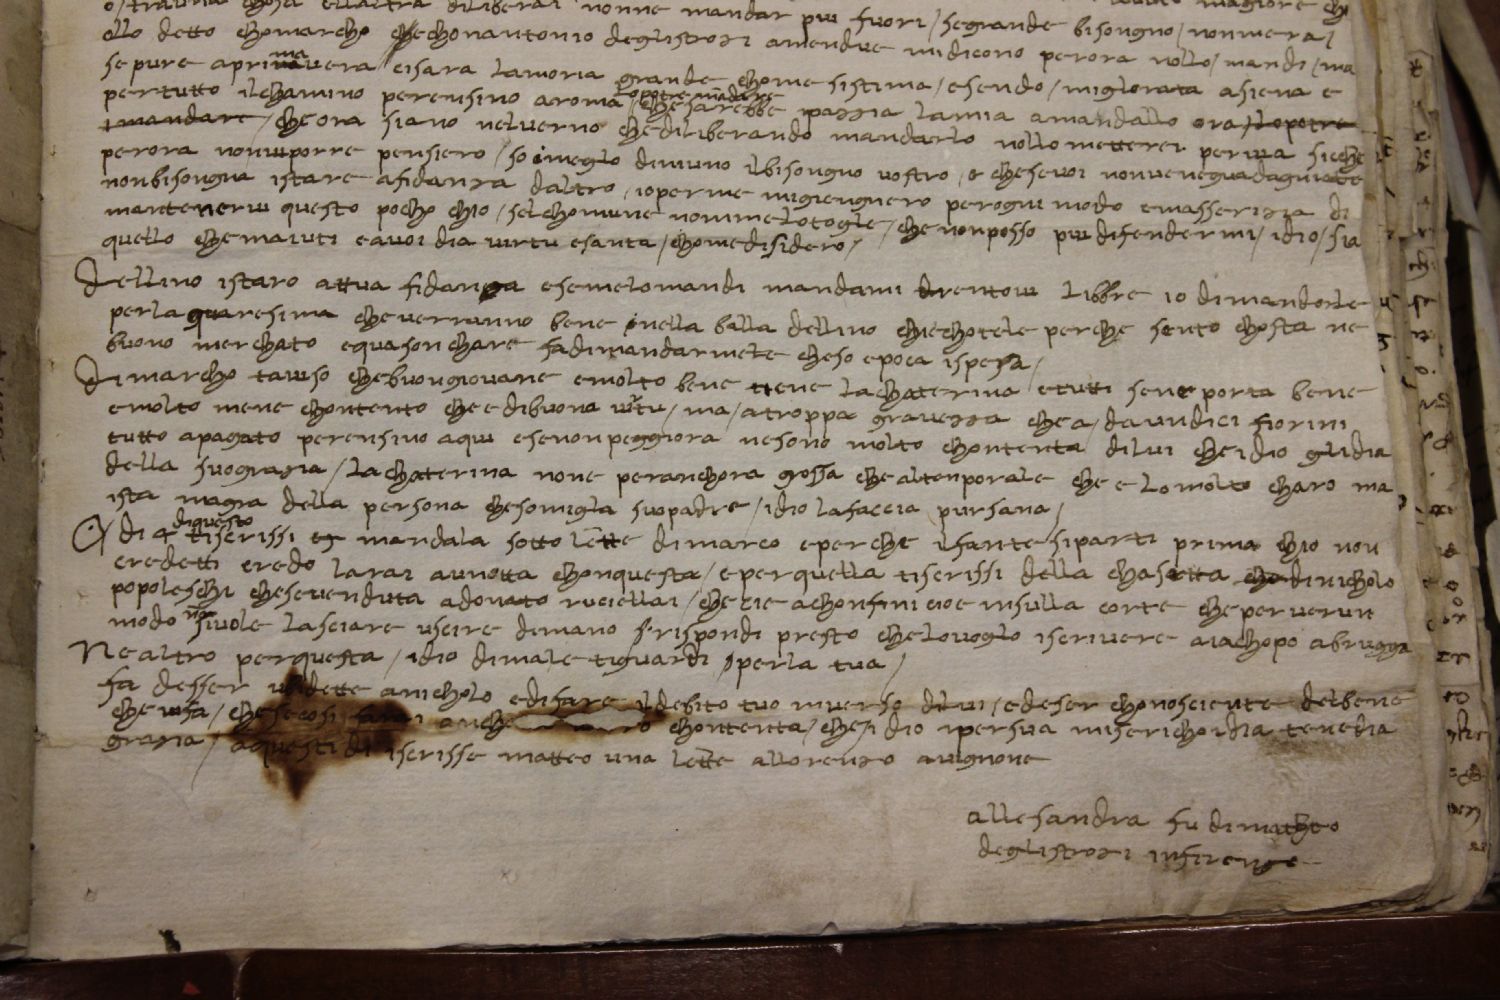 o/ travaria chosa ellaltra diliberai nonne mandar piu fuori / segrande bisongno / nonviera /
ollo detto chomarcho e chonantonio deglistrozi amendue midicono perora nollo / mandi / ma
sepure aprimavera / cisara lamoria grande chome sistima / esendo / migliorata asiena e
pertutto ilchamino perensino aroma / lopotre mandare / chesarebbe pazzia lamia amandallo ora / lopotre
imandare / cheora siano nelverno chediliberando mandarlo nollo metterei perwia siche
perora nonviporre pensiero / so imeglio dimuno ilbisongno vostro / e chesevoi nonveneguadagniate
nonbisongna istare afidanza daltro / ioperme migiengnero perogni modo emasserizia di
mantenerui questo pocho chio / selchomune nonmelotogle / chenonposso piu difendermi / idio / sia
quello chemaiuti eavoi dia virtu esanta / chomedisidero /
Dellino istaro attua fidanza esemelomandi mandami trentoui libbre 10 dimandorle
perlaquaresima cheverranno bene inella balla dellino chiechotele perche sento chosta ne
buono merchato equasonchare fadimandarmele cheso epoca ispesa /
Dimarcho taviso chebuongiovane emolto bene ttene lachaterina etutti sene porta bene
emolto mene chontento che edibuona virtu / ma / atroppa gravezza chea / daundici fiorini
tutto apagato perensino aqui esenonpeggiora nesono molto chontenta dilui cheidio glidia
della suograzia / lachaterina none peranchora grossa chealtenporale che elomolto charo ma
ista magra della persona chesomigla suopadre / idio lafaccia pursana /
A di 4 diquesto tiscrissi mandala sotto lettere dimarco eperche ilfante siparti prima chio non
credetti credo larai aunotta chonquesta / eperquella tiscrissi della chasetta dinicholo
popoleschi chesevenduta adonato rucellai / checie achonfini cioe insulla corte cheperverun
modo nosivole lasciare uscire dimano / rispondi presto chelovoglo iscrivere aiachopo abruggia
Nealtro perquesta / idio dimale tiguardi / perla tua /
fa desser ubidette anicholo edifare ildebito tuo inverso dilui / edeser chonosciente delbene
cheuifa / chesecosi farai anche chontenta / che / idio persua miserichordia tenedia
grazia / aquesti di iscrisse matteo una lettere allorenzo avignone
allesandra fu dimatteo
deglistrozi infirenze